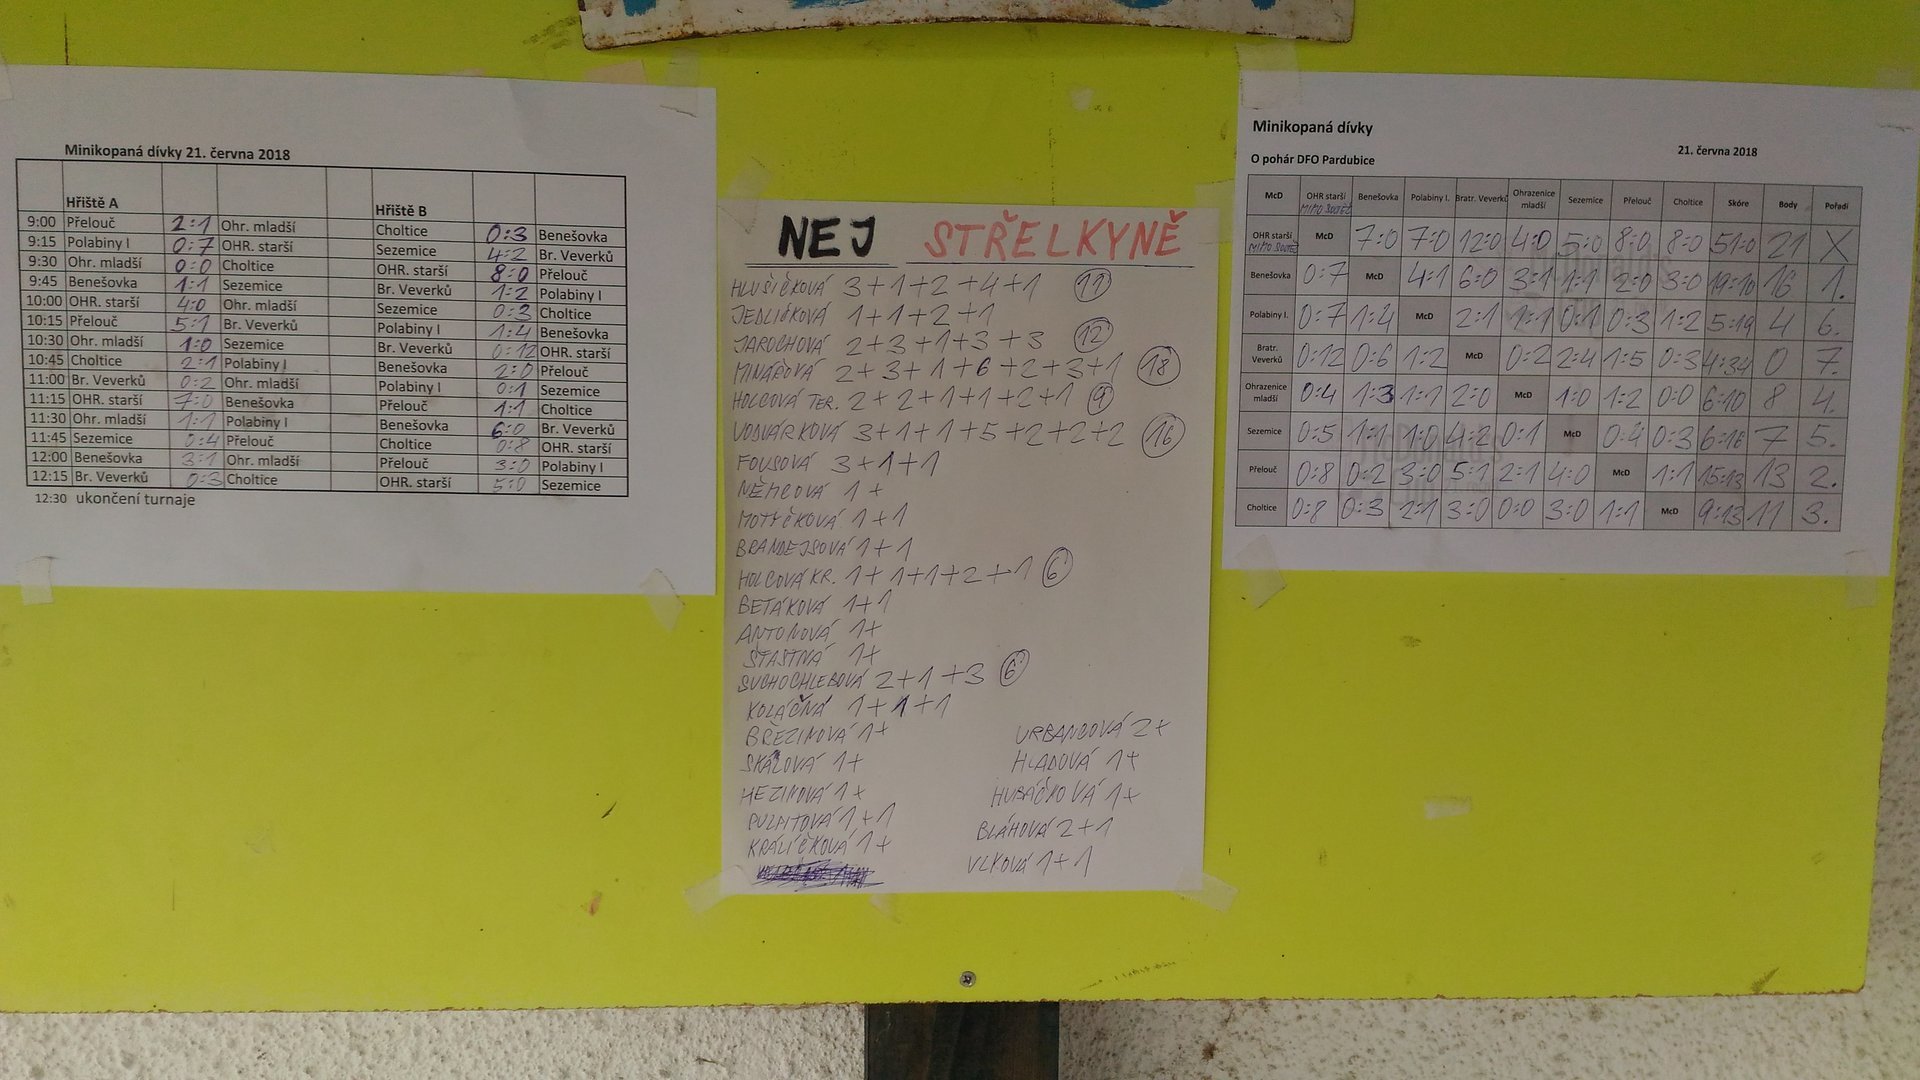 Minikopaná dívky 21. června 2018
Hřiště A Hřiště B
9:00 Přelouč 2:1 Ohr. mladší Choltice 0:3 Benešovka
9:15 Polabiny I 0:7 OHR. starší Sezemice 4:2 Br. Veverků
9:30 Ohr. mladší 0:0 Choltice OHR. starší 8:0 Přelouč
9:45 Benešovka 1:1 Sezemice Br. Veverků 1:2 Polabiny I
10:00 OHR. starší 4:0 Ohr. mladší Sezemice 0:3 Choltice
10:15 Přelouč 5:1 Br. Veverků Polabiny I 1:4 Benešovka
10:30 Ohr. mladší 1:0 Sezemice Br. Veverků 0:12 OHR. starší
10:45 Choltice 2:1 Polabiny I Benešovka 2:0 Přelouč
11:00 Br. Veverků 0:2 Ohr. mladší Polabiny I 0:1 Sezemice
11:15 OHR. starší 7:0 Benešovka Přelouč 1:1 Choltice
11:30 Ohr. mladší 1:1 Polabiny I Benešovka 6:0 Br. Veverků
11:45 Sezemice 0:4 Přelouč Choltice 0:8 OHR. starší
12:00 Benešovka 3:1 Ohr. mladší Přelouč 3:0 Polabiny I
12:15 Br. Veverků 0:3 Choltice OHR. starší 5:0 Sezemice
12:30 ukončení turnaje
NEJ STŘELKYNĚ
HLUŠIČKOVÁ 3+1+2+4+1 11
JEDLIČKOVÁ 1+1+2+1
JAROCHOVÁ 2+3+1+3+3 12
MINÁŘOVÁ 2+3+1+6+2+3+1 18
HOLCOVÁ TER. 2+2+1+1+2+1 9
VODVÁRKOVÁ 3+1+1+5+2+2+2 16
FOUSOVÁ 3+1+1
NĚMCOVÁ 1+
MOTYČKOVÁ 1+1
BRANDEJSOVÁ 1+1
HOLCOVÁ KR. 1+1+1+2+1 6
BETÁKOVÁ 1+1
ANTONOVÁ 1+
ŠŤASTNÁ 1+
SUCHOCHLEBOVÁ 2+1+3 6
KOLÁČNÁ 1+1+1
BŘEZINOVÁ 1+
SKÁLOVÁ 1+
MEZINOVÁ 1+
PULPITOVÁ 1+1
KRÁLÍČKOVÁ 1+
URBANCOVÁ 2+
HLADOVÁ 1+
HUBÁČKOVÁ 1+
BLÁHOVÁ 2+1
VLKOVÁ 1+1
Minikopaná dívky
21. června 2018
O pohár DFO Pardubice
McD OHR starší MIMO SOUTĚŽ Benešovka Polabiny I. Bratr. Veverků Ohrazenice mladší Sezemice Přelouč Choltice Skóre Body Pořadí
OHR starší MIMO SOUTĚŽ McD 7:0 7:0 12:0 4:0 5:0 8:0 8:0 51:0 21 X
Benešovka 0:7 McD 4:1 6:0 3:1 1:1 2:0 3:0 19:10 16 1.
Polabiny I. 0:7 1:4 McD 2:1 1:1 0:1 0:3 1:2 5:19 4 6.
Bratr. Veverků 0:12 0:6 1:2 McD 0:2 2:4 1:5 0:3 4:34 0 7.
Ohrazenice mladší 0:4 1:3 1:1 2:0 McD 1:0 1:2 0:0 6:10 8 4.
Sezemice 0:5 1:1 1:0 4:2 0:1 McD 0:4 0:3 6:16 7 5.
Přelouč 0:8 0:2 3:0 5:1 2:1 4:0 McD 1:1 15:13 13 2.
Choltice 0:8 0:3 2:1 3:0 0:0 3:0 1:1 McD 9:13 11 3.